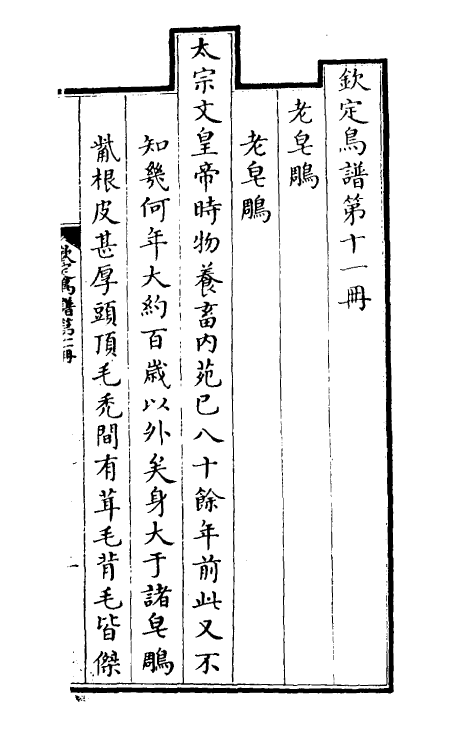 欽定鳥譜第十一冊
老皂鵰
老皂鵰
太宗文皇帝時物養畜内苑已八十餘年前此又不
知幾何年大約百歲以外矣身大于諸皂鵰
觜根皮甚厚頭頂毛禿間有茸毛背毛皆傑